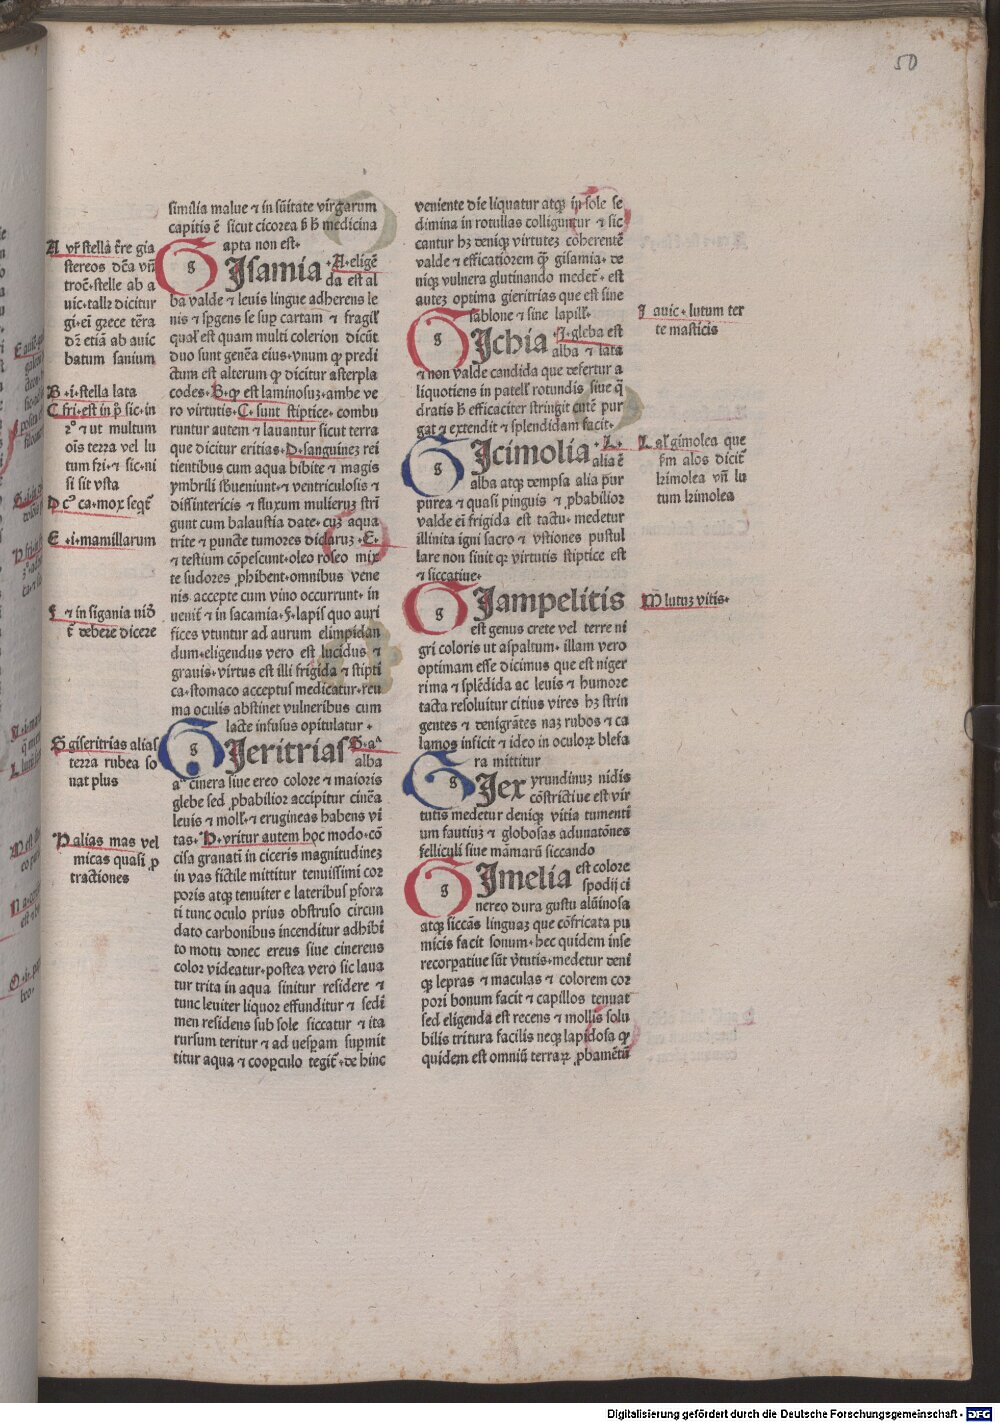 50
similia malue ⁊ in sūitate virgarum
capitis ē sicut cicorea h̄ h̄ medicina
apta non est.
A vr̄ stella t̄re gia
stereos dēa vn̄
troc̄.stelle ab a
uic.tallr dicitur
gi.ei grece tēra
dr̄ etiā ab auic
batum sanium
B .i.stella lata
C fri.est in p̄ sic.in
ois terra vel lu
tum fri.⁊ sic.ni
si sit vsta
D cᵒ ca.mox seqt̄
E .i.mamillarum
F ⁊ in sigania uið
t̄ debere dicere
G giseritrias alias
terra rubea so
nat plus
H alias mas vel
micas quasi ꝓ
tractiones
g Isamia .A.eligē
da est al
ba valde ⁊ leuis lingue adherens le
nis ⁊ sp̄gens se sup cartam ⁊ fragil̄
qual̄ est quam multi colerion dicūt
duo sunt genēa eius.vnum ꝙ predi
ctum est alterum ꝙ dicitur asterpla
codes.B.ꝙ est laminosuꝫ.ambe ve
ro virtutis.C.sunt stiptice.combu
runtur autem ⁊ lauantur sicut terra
que dicitur eritias.D.sanguineꝫ rei
tientibus cum aqua bibite ⁊ magis
ymbrili sb̄ueniunt.⁊ ventriculosis ⁊
dissintericis ⁊ fluxum mulieruꝫ stri
gunt cum balaustia date.cuꝫ aqua
trite ⁊ puncte tumores didaruꝫ.E.
⁊ testium cōpescunt.oleo roseo mix
te sudores ꝓhibent.omnibus vene
nis accepte cum vino occurrunt.in
uenit̄ ⁊ in sacamia.F.lapis quo auri
fices vtuntur ad aurum elimpidan
dum.eligendus vero est lucidus ⁊
grauis.virtus est illi frigida ⁊ stipti
ca.stomaco acceptus medicatur.reu
ma oculis abstinet vulneribus cum
lacte infusus opitulatur.
g Ieritrias G.aᵃ
alba
aᵃ cinera siue ereo colore ⁊ maioris
glebe sed ꝓbabilior accipitur cinēa
leuis ⁊ moll̄.⁊ erugineas habens vi
tas.H.vritur autem hoc modo.cō
cisa granatī in ciceris magnitudineꝫ
in vas fictile mittitur tenuissimi cor
poris atqꝫ tenuiter e lateribus pfora
ti tunc oculo prius obstruso circun
dato carbonibus incenditur adhibi
to motu donec ereus siue cinereus
color videatur.postea vero sic laua
tur trita in aqua sinitur residere ⁊
tunc leuiter liquor effunditur ⁊ sedi
men residens sub sole siccatur ⁊ ita
rursum teritur ⁊ ad uespam supmit
titur aqua ⁊ coopculo tegit̄.de hinc
veniente die liquatur atqꝫ in sole se
dimina in rotullas colliguntur ⁊ sic
cantur hꝫ deniqꝫ virtuteꝫ coherentē
valde ⁊ efficatiorem ꝙ gisamia.de
niqꝫ vulnera glutinando medet̄.est
auteꝫ optima gieritrias que est sine
sablone ⁊ sine lapill̄.
g Ichia .I.gleba est
alba ⁊ lata
⁊ non valde candida que defertur a
liquotiens in patell̄ rotundis siue q̄
dratis h̄ efficaciter stringit cutē pur
gat ⁊ extendit ⁊ splendidam facit.
g Icimolia .L.
alia ē
alba atqꝫ dempsa alia pur
purea ⁊ quasi pinguis ⁊ ꝓbabilior
valde ei frigida est tactu.medetur
illinita igni sacro ⁊ vstiones pustul
lare non sinit qꝫ virtutis stiptice est
⁊ siccatiue.
g Iampelitis
est genus crete vel terre ni
gri coloris ut aspaltum.illam vero
optimam esse dicimus que est niger
rima ⁊ splēdida ac leuis ⁊ humore
tacta resoluitur citius vires hꝫ strin
gentes ⁊ denigrātes naꝫ rubos ⁊ ca
lamos inficit ⁊ ideo in oculoꝝ blefa
ra mittitur
g Iex yrundinuꝫ nidis
cōstrictiue est vir
tutis medetur deniqꝫ vitia tumenti
um fautiuꝫ ⁊ globosas adunatōnes
felliculi siue māmarū siccando
g Imelia est colore
spodij ci
nereo dura gustu alūinosa
atqꝫ siccās linguaꝫ que cōfricata pu
micis facit sonum.hec quidem inse
recorpatiue sūt v̄tutis.medetur deni
qꝫ lepras ⁊ maculas ⁊ colorem cor
pori bonum facit ⁊ capillos tenuat
sed eligenda est recens ⁊ mollis solu
bilis tritura facilis neqꝫ lapidosa ꝙ
quidem est omniū terraꝝ ꝓbamētū
I auic.lutum ter
te masticis
L al̄ gimolea que
f̄m alos dicit̄
kimolea vn̄ lu
tum kimolea
M lutuꝫ vitis.
Digitalisierung gefördert durch die Deutsche Forschungsgemeinschaft - DFG